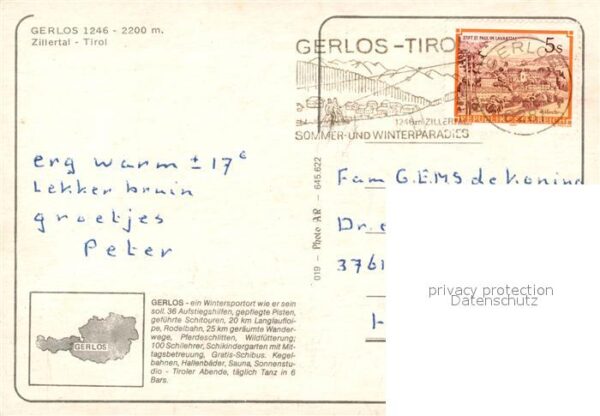 GERLOS 1246 - 2200 m.
Zillertal - Tirol
GERLOS - TIROL
1246 m ZILLERTAL
SOMMER- UND WINTERPARADIES
STIFT ST. PAUL IM LAVANTTAL
5s
GERLOS
erg warm ± 17°
Lekker bruin
groetjes
Peter
019 - Photo AR - 645.622
Fam G.E.M.S de Koning
Dr.
3761
H
privacy protection
Datenschutz
GERLOS
GERLOS - ein Wintersportort wie er sein
soll. 36 Aufstiegshilfen, gepflegte Pisten,
geführte Schitouren, 20 km Langlaufloi-
pe, Rodelbahn, 25 km geräumte Wander-
wege, Pferdeschlitten, Wildfütterung;
100 Schilehrer, Schikindergarten mit Mit-
tagsbetreuung, Gratis-Schibus. Kegel-
bahnen, Hallenbäder, Sauna, Sonnenstu-
dio - Tiroler Abende, täglich Tanz in 6
Bars.